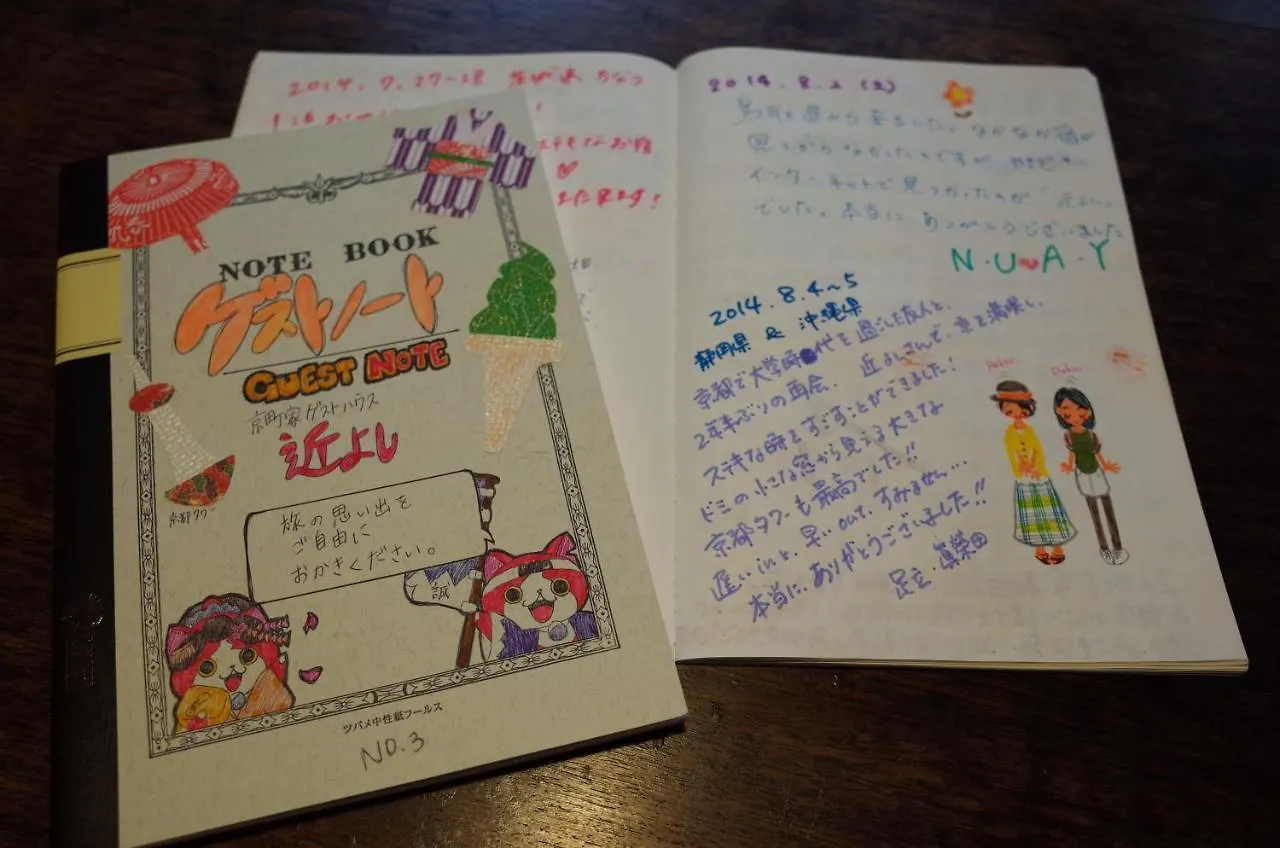 NOTE BOOK
ゲストノート
GUEST NOTE
京町家ゲストハウス
近よし
京都タワー
旅の思い出を
ご自由に
おかきください。
誠
ツバメ中性紙フールス
NO.3
2014.7.27~28
ステキなお宿
また来ます!
2014.8.2(土)
鳥取県から来ました。なかなか宿が
見つからなかったのですが
インターネットで見つかったのが「近よし」
でした。本当にありがとうございました
N・U・A・Y
2014.8.4~5
静岡県 & 沖縄県
京都で大学時代を過ごした友人と、
2年半ぶりの再会。近よしさんで、京を満喫し、
ステキな時をすごすことができました!
ドミの小さな窓から見える大きな
京都タワーも最高でした!!
遅いinと、早いout、すみません…
本当に、ありがとうございました!!
足立・眞榮田